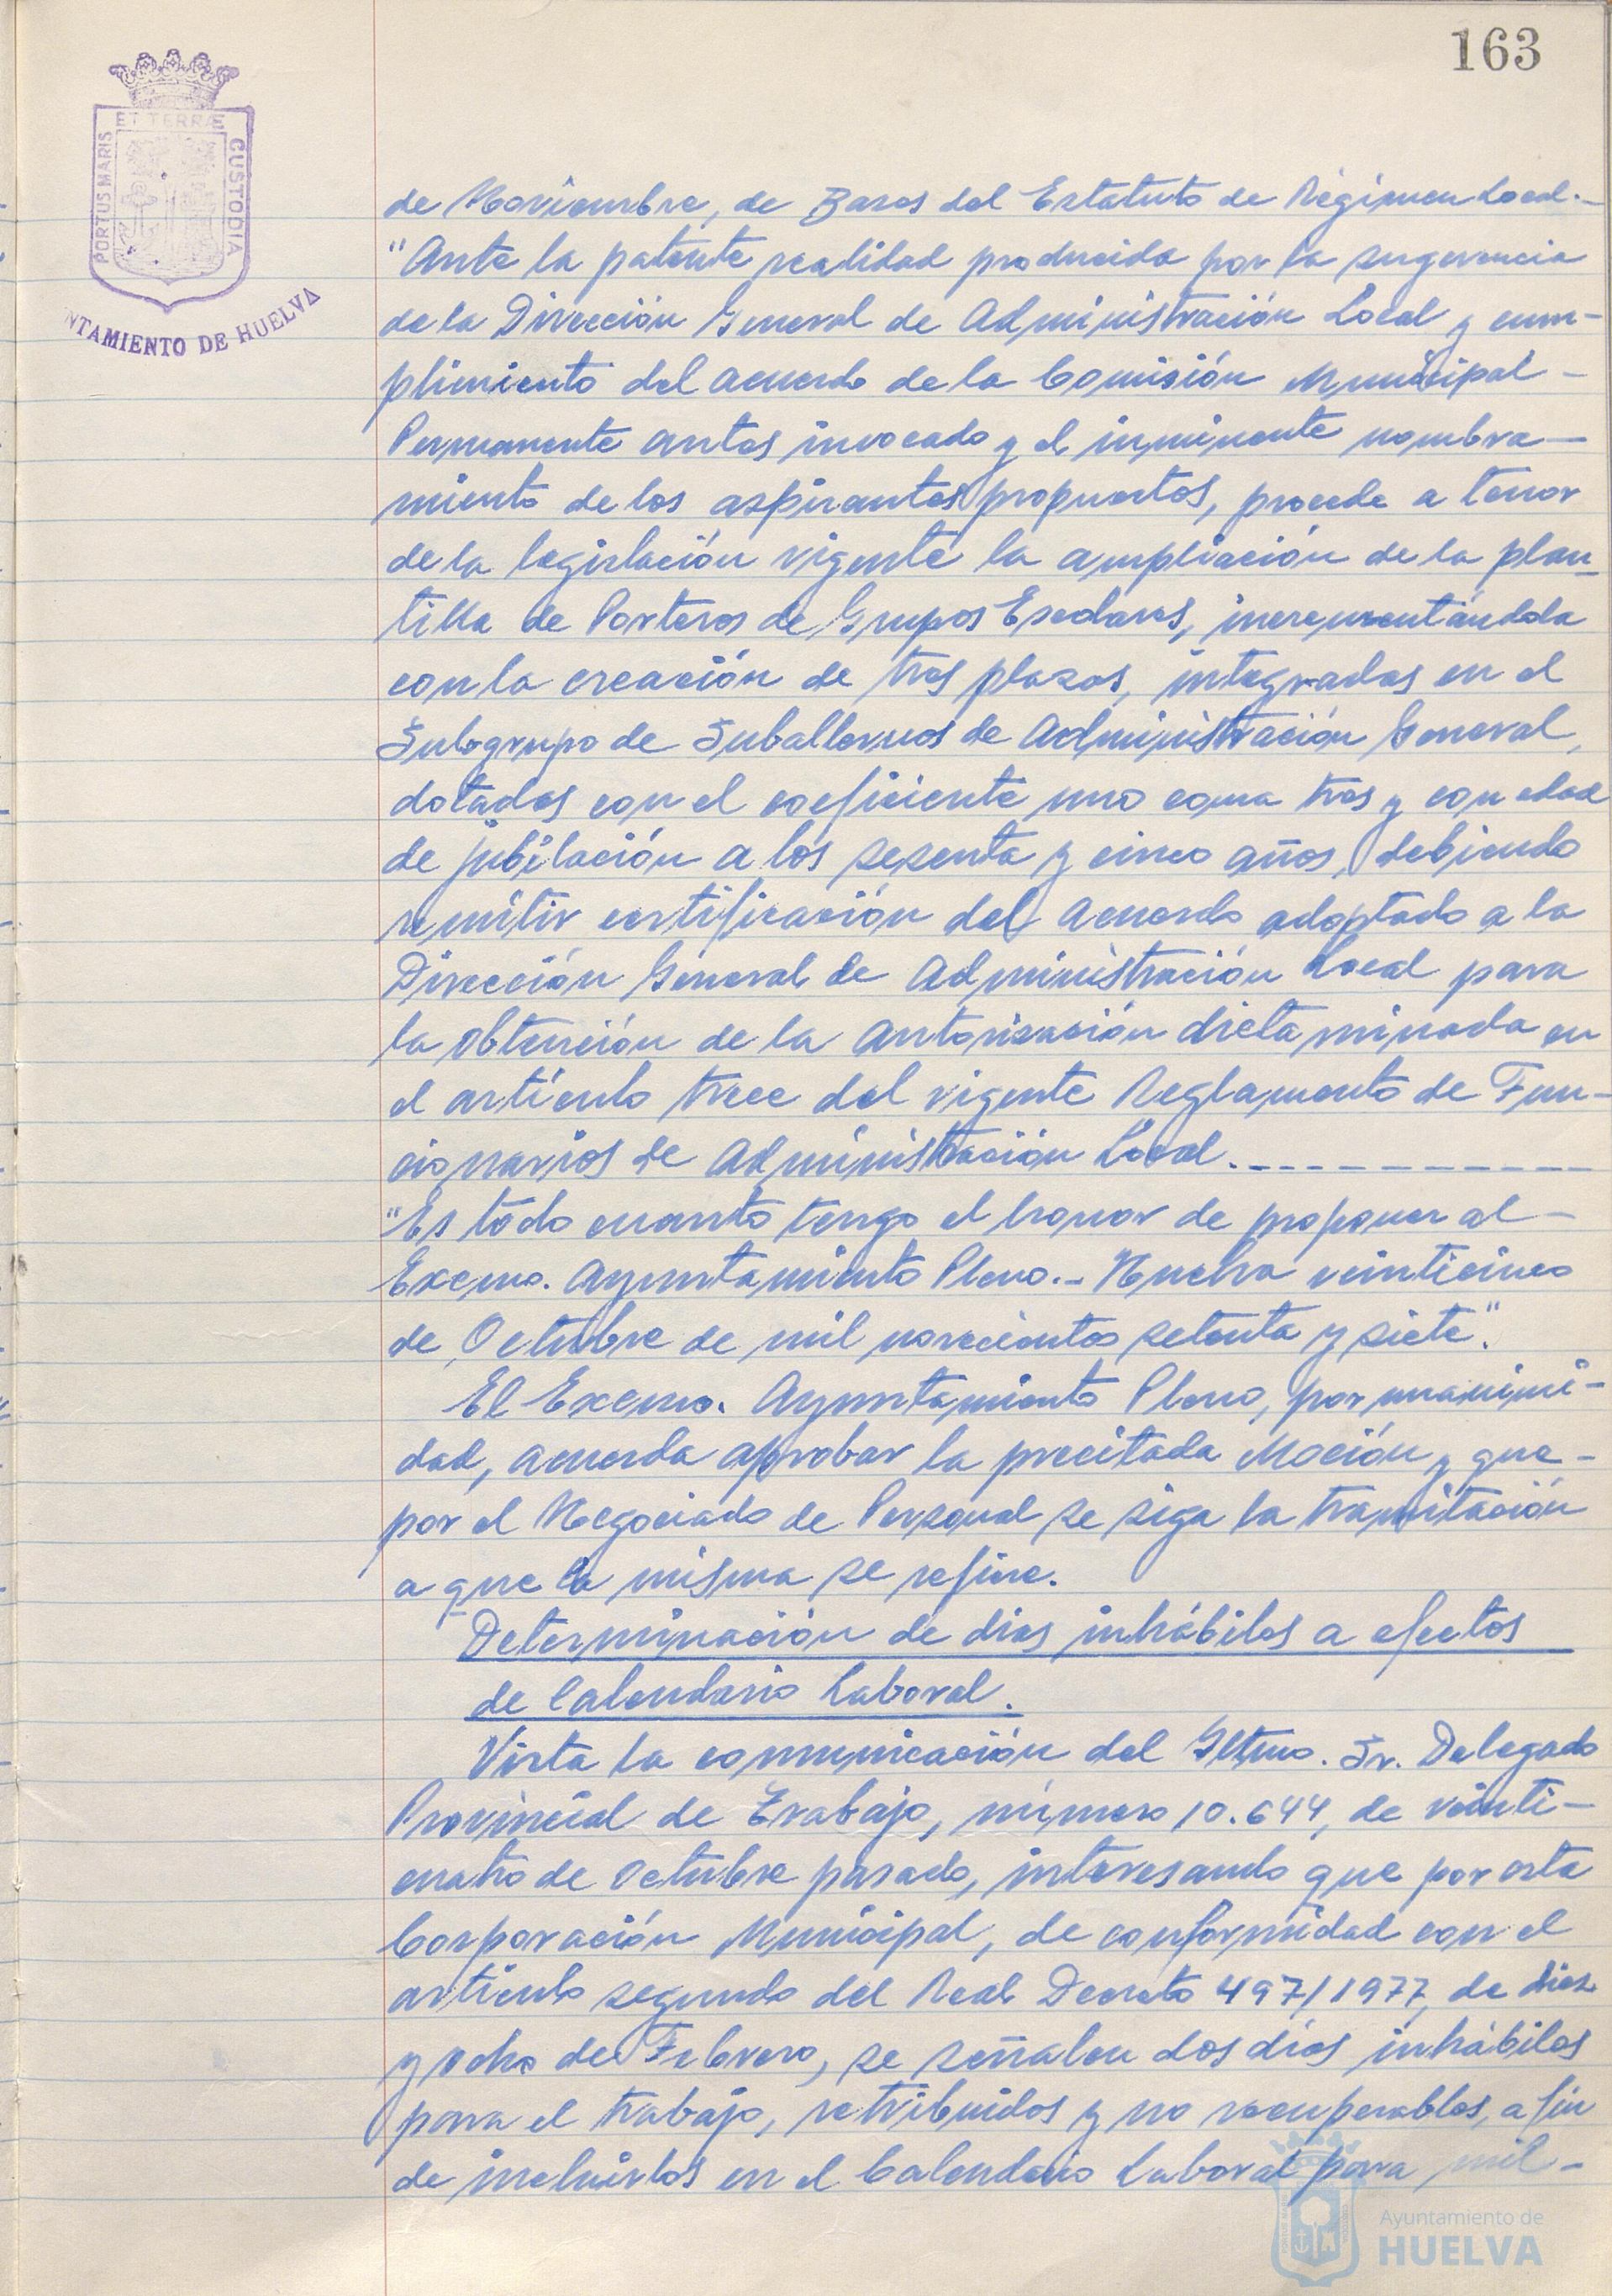 163
ET TERRÆ
PORTUS MARIS
CUSTODIA
NTAMIENTO DE HUELVA
de Noviembre, de Bases del Estatuto de Régimen Local.-
"Ante la patente realidad producida por la sugerencia
de la Dirección General de Administración Local y cum-
plimiento del acuerdo de la Comisión Municipal -
Permanente antes invocado y el inminente nombra-
miento de los aspirantes propuestos, procede a tenor
de la legislación vigente la ampliación de la plan-
tilla de Porteros de Grupos Escolares, incrementándola
con la creación de tres plazas, integradas en el
Subgrupo de Subalternos de Administración General,
dotadas con el coeficiente uno coma tres y con edad
de jubilación a los sesenta y cinco años, debiendo
remitir certificación del acuerdo adoptado a la
Dirección General de Administración Local para
la obtención de la autorización dictaminada en
el artículo trece del vigente Reglamento de Fun-
cionarios de Administración Local.-----------
"Es todo cuanto tengo el honor de proponer al -
Excmo. Ayuntamiento Pleno.- Huelva veinticinco
de Octubre de mil novecientos setenta y siete".
El Excmo. Ayuntamiento Pleno, por unanimi-
dad, acuerda aprobar la precitada Moción y que -
por el Negociado de Personal se siga la tramitación
a que la misma se refiere.
Determinación de días inhábiles a efectos
de Calendario Laboral.
Vista la comunicación del Iltmo. Sr. Delegado
Provincial de Trabajo, número 10.644, de veinti-
cuatro de Octubre pasado, interesando que por esta
Corporación Municipal, de conformidad con el
artículo segundo del Real Decreto 497/1977, de diez
y ocho de Febrero, se señalen dos días inhábiles
para el trabajo, retribuidos y no recuperables, a fin
de incluirlos en el Calendario Laboral para mil -
Ayuntamiento de
HUELVA